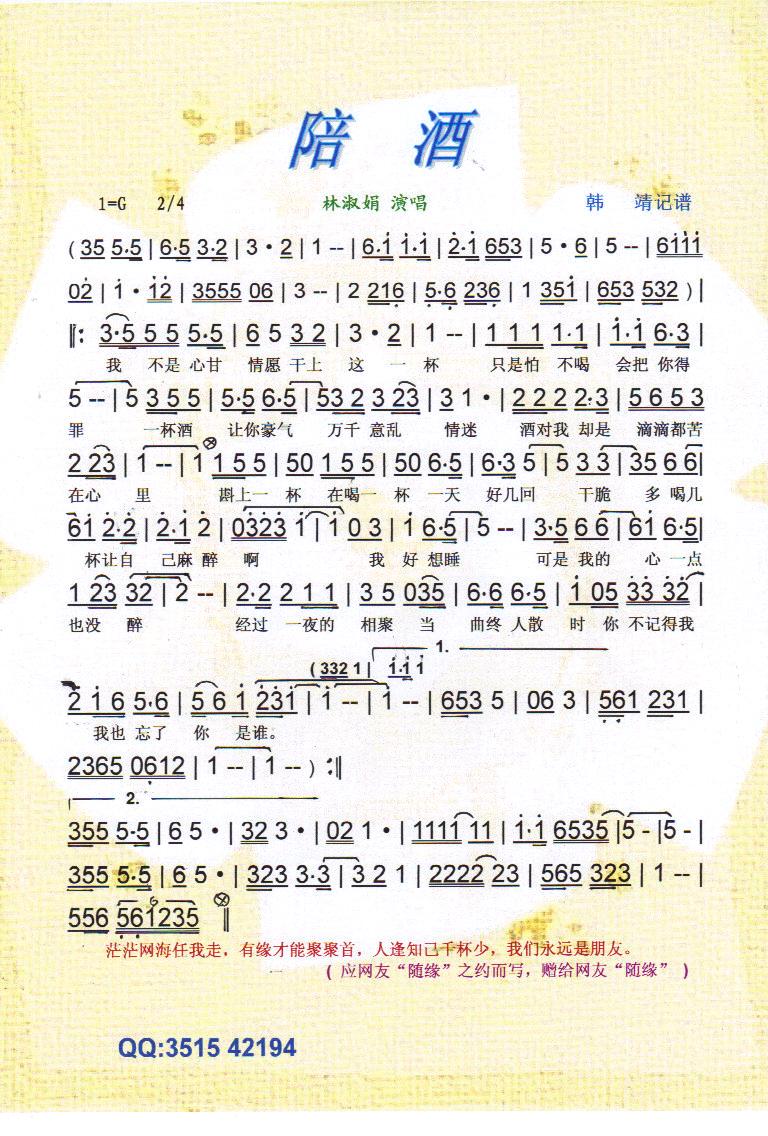 陪 酒
1=G 2/4 林淑娟 演唱 韩 靖记谱
( 35 5·5 | 6·5 3·2 | 3 · 2 | 1 -- | 6·1 1·1 | 2·1 653 | 5 · 6 | 5 -- | 6111
02 | 1 · 12 | 3555 06 | 3 -- | 2 216 | 5·6 236 | 1 351 | 653 532 ) |
‖: 3·5 5 5 5·5 | 6 5 3 2 | 3 · 2 | 1 -- | 1 1 1 1·1 | 1·1 6·3 |
我 不是 心甘 情愿 干上 这 一 杯 只是怕 不喝 会把 你得
5 -- | 5 3 5 5 | 5·5 6·5 | 53 2 3 23 | 3 1 · | 2 2 2 2·3 | 5 6 5 3
罪 一杯酒 让你豪气 万千 意乱 情迷 酒对我 却是 滴滴都苦
2 23 | 1 -- | 1 1 5 5 | 50 1 5 5 | 50 6·5 | 6·3 5 | 5 3 3 | 35 6 6 |
在心 里 斟上一 杯 在喝一 杯 一天 好几回 干脆 多 喝几
61 2·2 | 2·1 2 | 0323 1 | 1 0 3 | 1 6·5 | 5 -- | 3·5 6 6 | 61 6·5 |
杯让自 己麻 醉 啊 我 好 想睡 可是 我的 心 一点
1 23 32 | 2 -- | 2·2 2 1 1 | 3 5 035 | 6·6 6·5 | 1 05 33 32 |
也没 醉 经过 一夜的 相聚 当 曲终 人散 时 你 不记得我
1.
( 332 1 | 1·1 1
2 1 6 5·6 | 5 6 1 231 | 1 -- | 1 -- | 653 5 | 06 3 | 561 231 |
我也 忘了 你 是谁。
2365 0612 | 1 -- | 1 -- ) :‖
2.
355 5·5 | 6 5 · | 32 3 · | 02 1 · | 1111 11 | 1·1 6535 | 5 - | 5 - |
355 5·5 | 6 5 · | 323 3·3 | 3 2 1 | 2222 23 | 565 323 | 1 -- |
556 561235 ‖
茫茫网海任我走，有缘才能聚聚首，人逢知己千杯少，我们永远是朋友。
( 应网友“随缘”之约而写，赠给网友“随缘” )
QQ:3515 42194